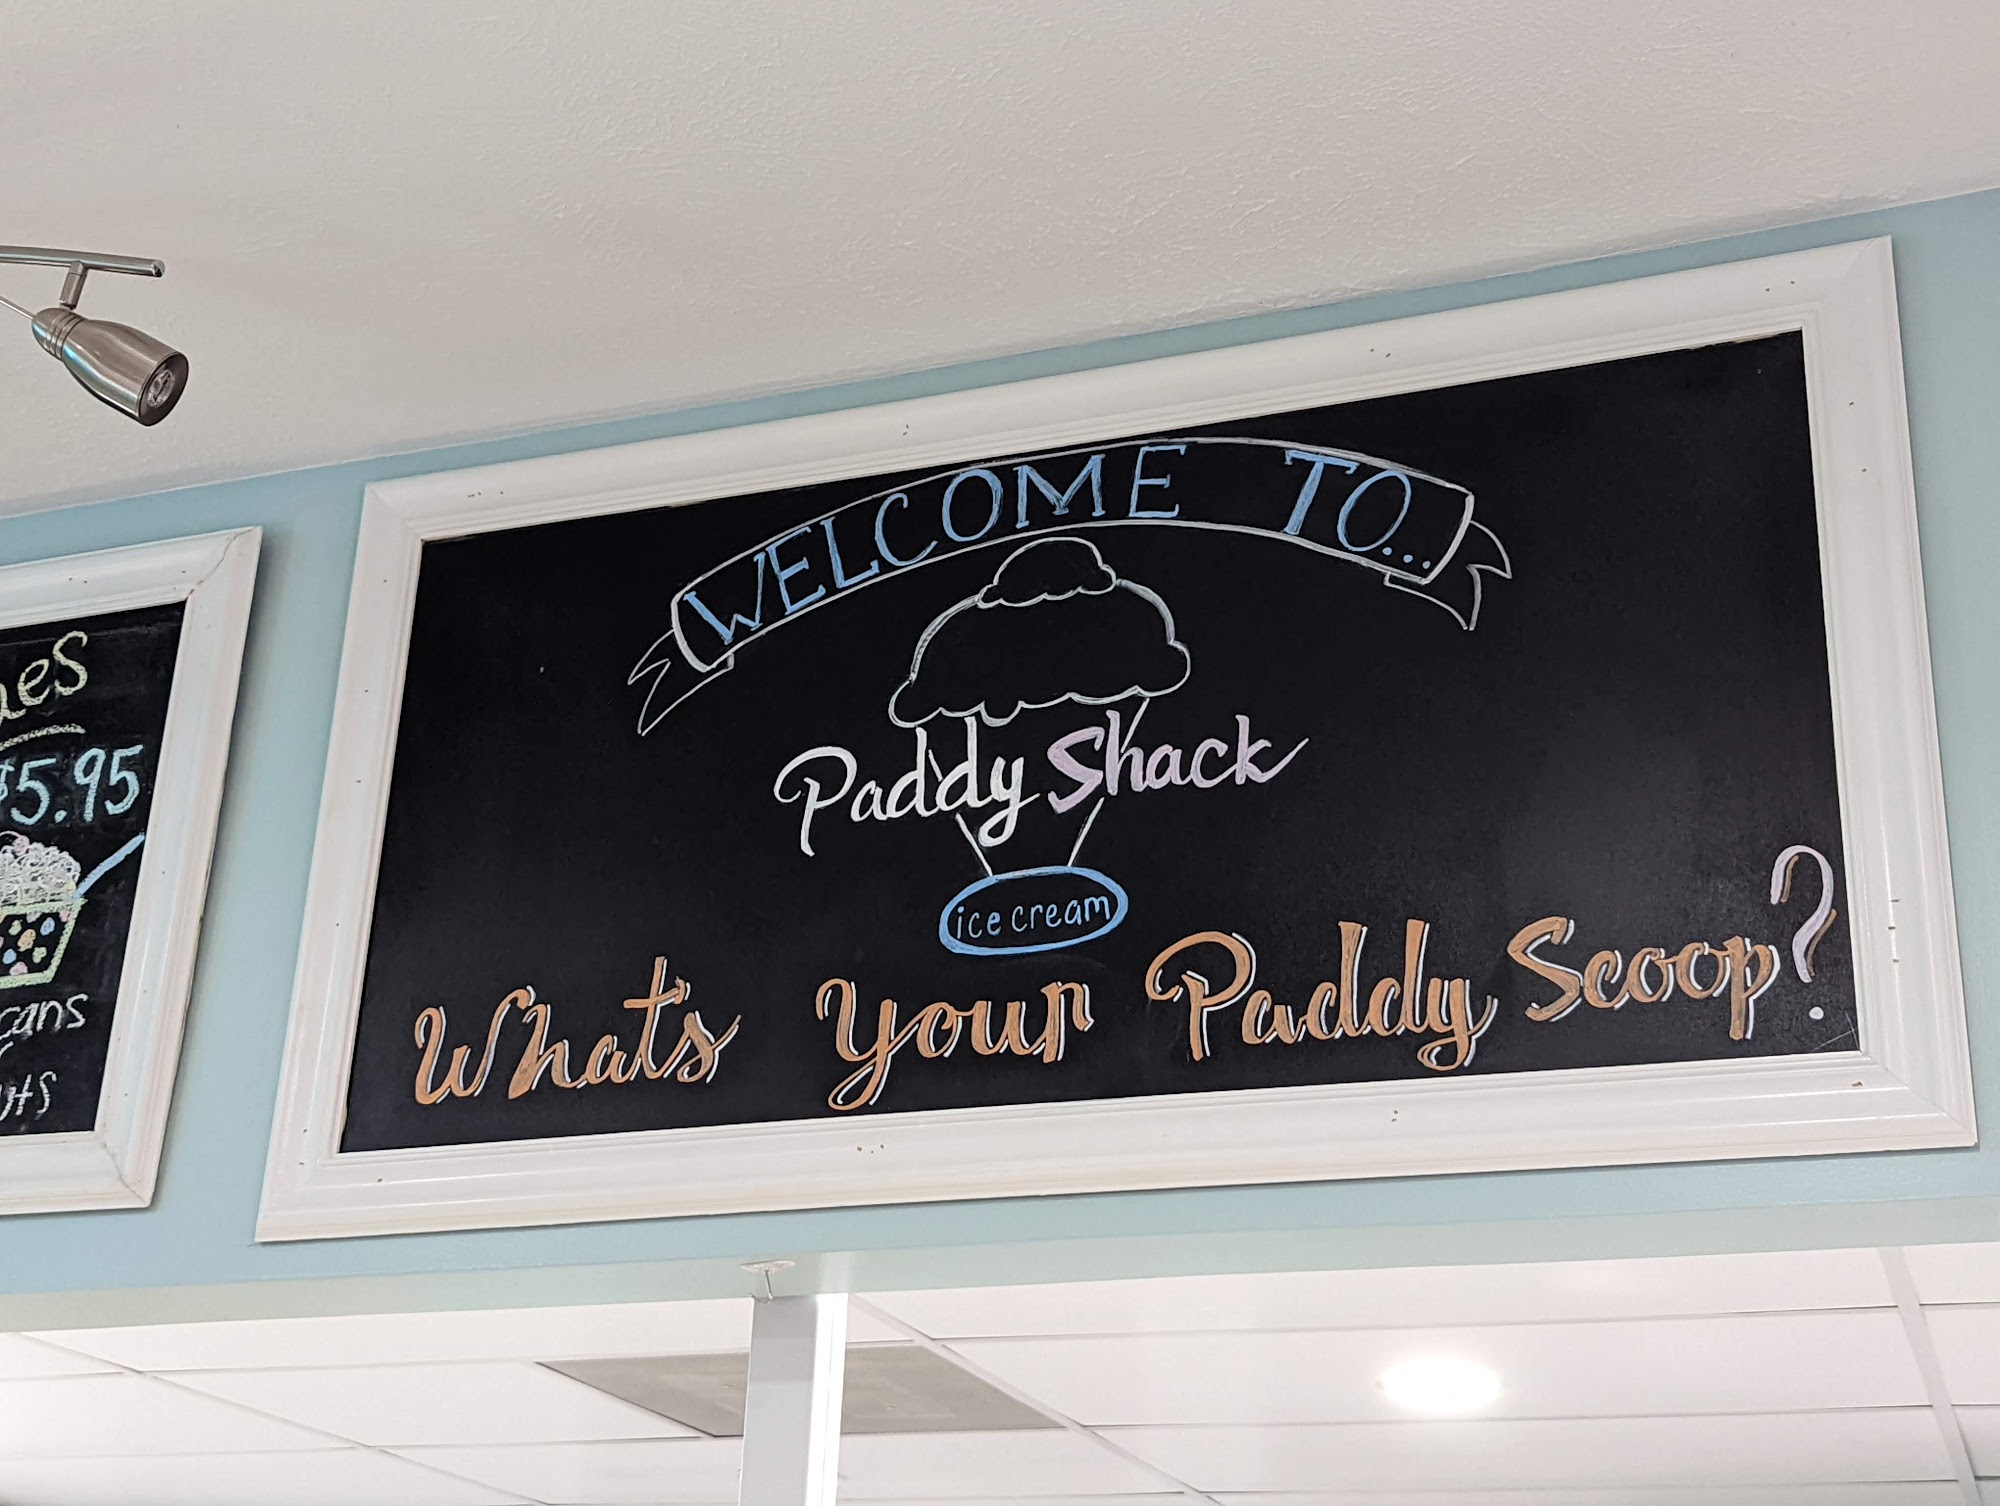 WELCOME TO...
Paddy Shack
ice cream
What's Your Paddy Scoop?
$5.95